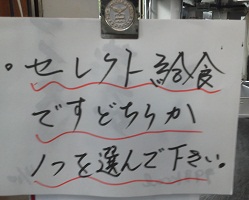 。セレクト給食
ですどちらか
1つを選んで下さい。